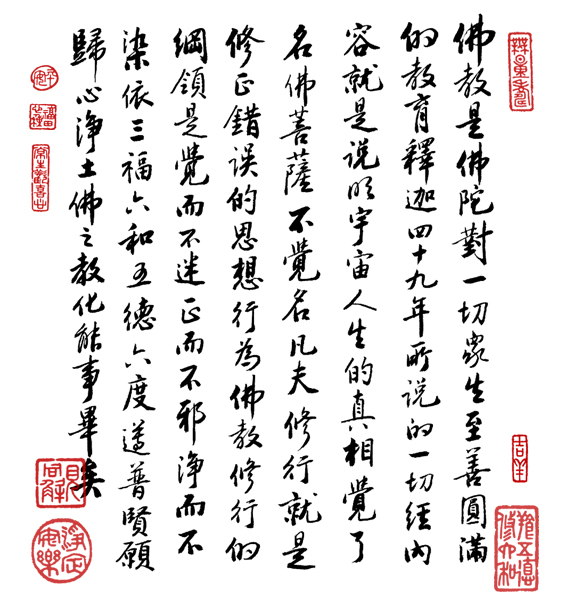 佛教是佛陀對一切眾生至善圓滿
的教育釋迦四十九年所説的一切經內
容就是説明宇宙人生的真相覺了
名佛菩薩不覺名凡夫修行就是
修正錯誤的思想行為佛教修行的
綱領是覺而不迷正而不邪淨而不
染依三福六和五德六度遵普賢願
歸心淨土佛之教化能事畢矣
吉羊